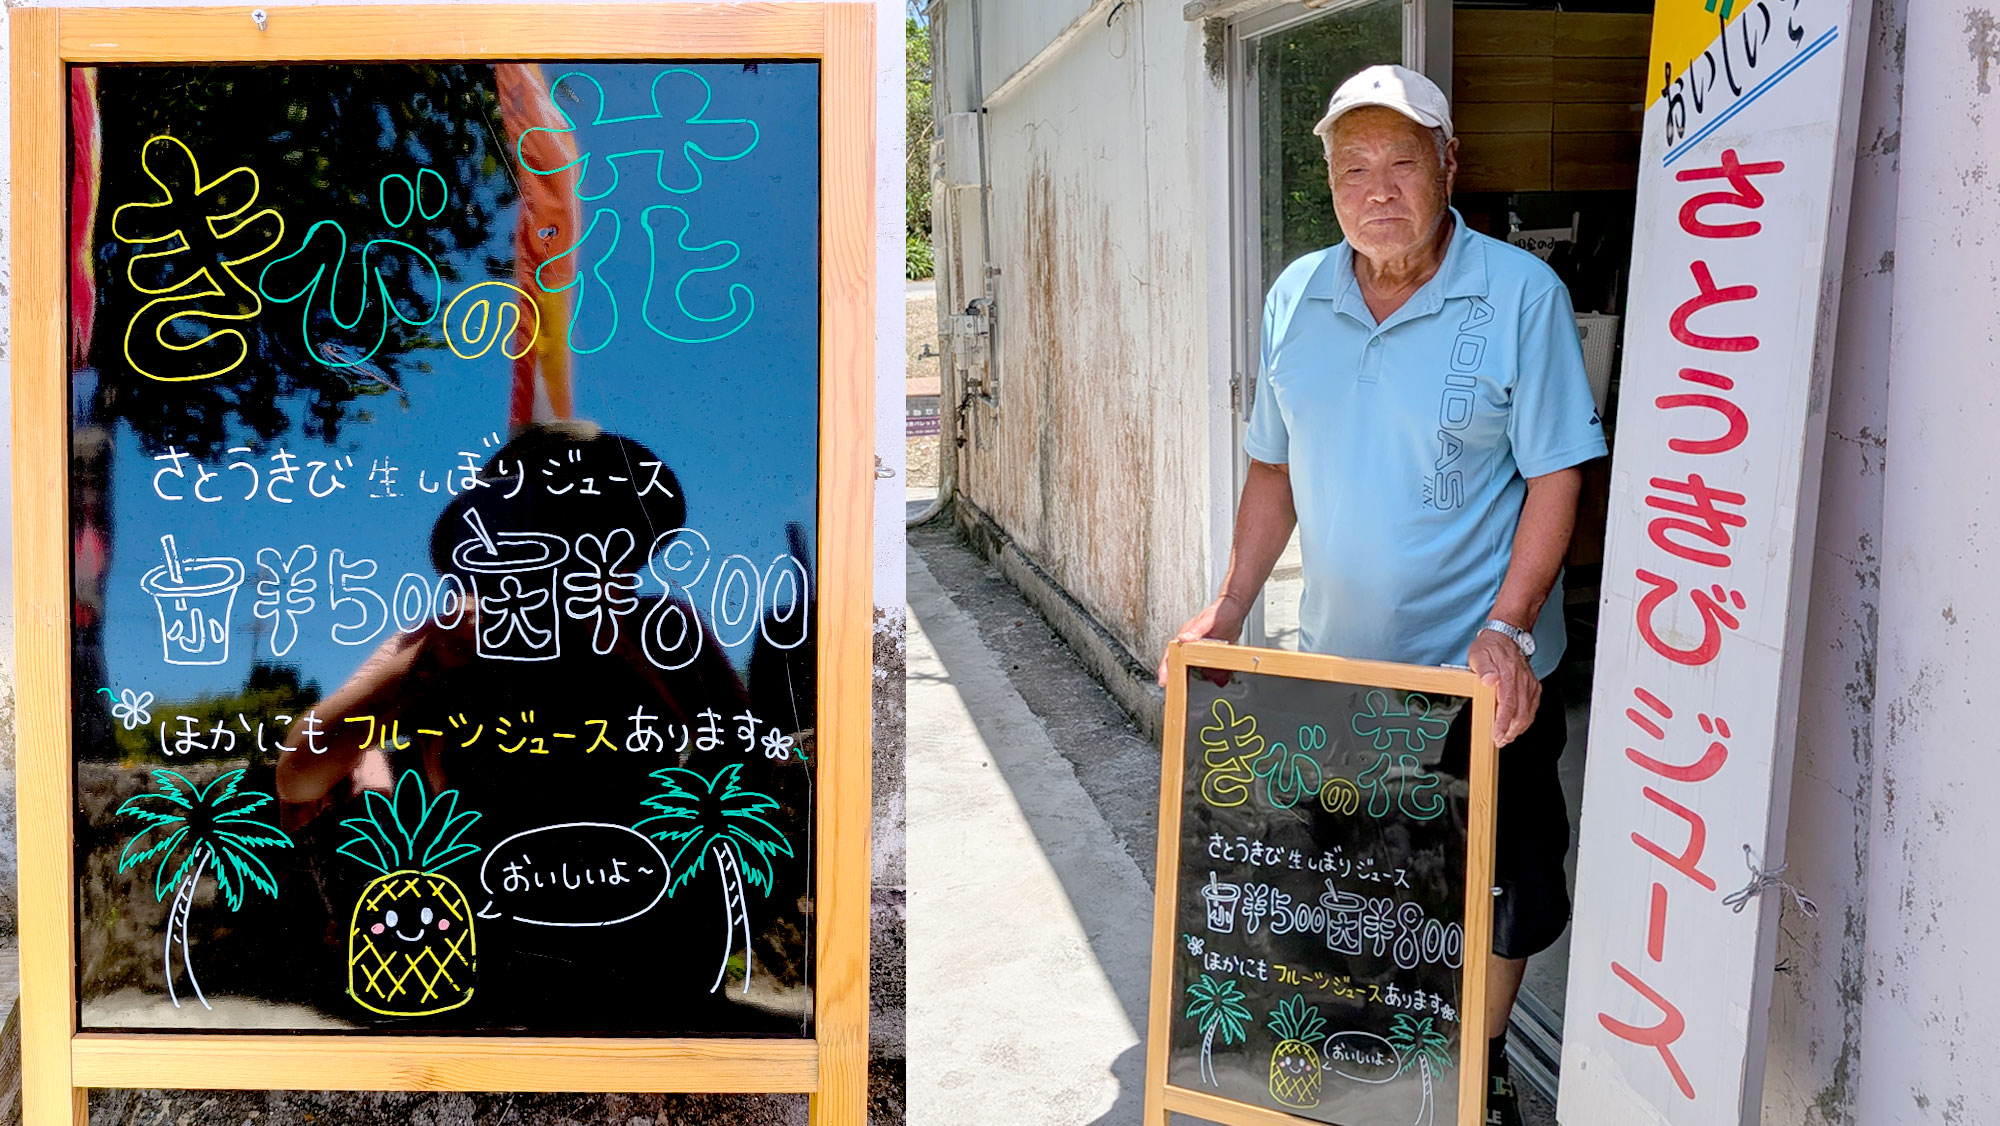 きびの花
さとうきび 生しぼり ジュース
小 ¥500 大 ¥800
ほかにも フルーツジュース あります
おいしいよ~
おいしい
さとうきびジュース
ADIDAS
TRN
きびの花
さとうきび 生しぼり ジュース
小 ¥500 大 ¥800
ほかにも フルーツジュース あります
おいしいよ~